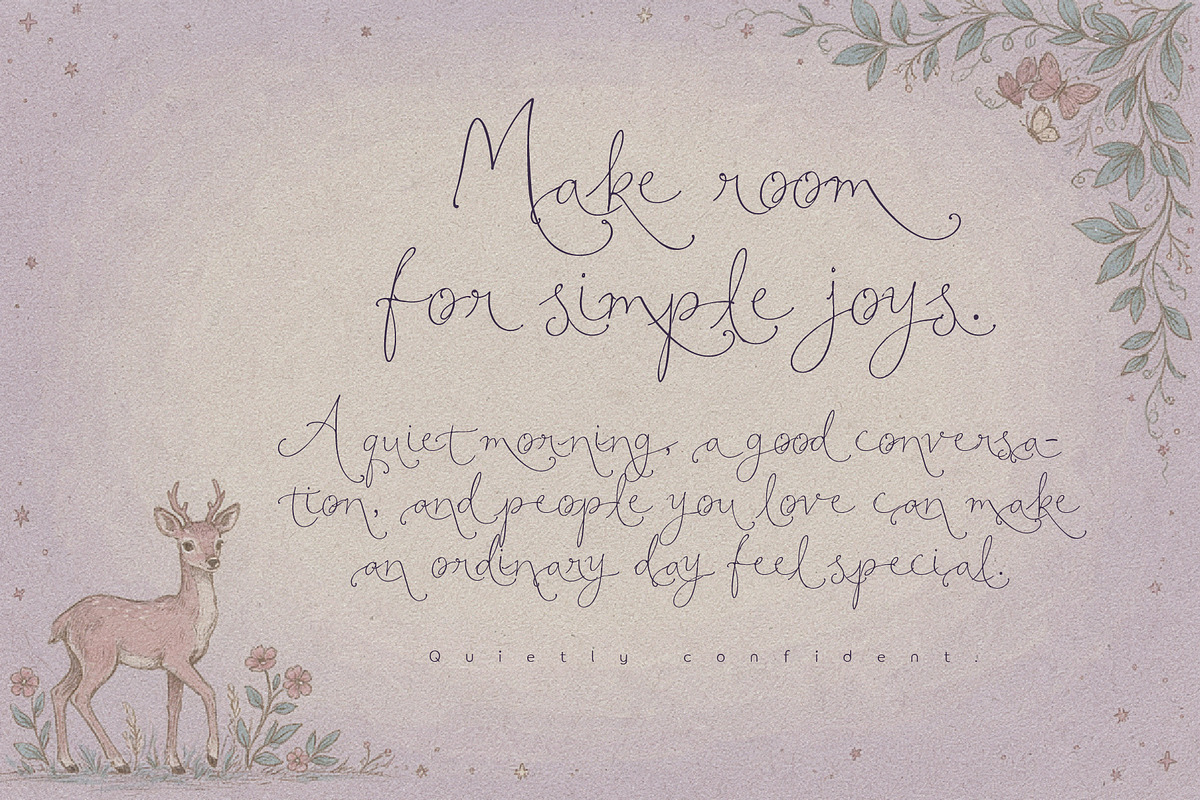 Make room
for simple joys.
A quiet morning, a good conversa-
tion, and people you love can make
an ordinary day feel special.
Quietly confident.